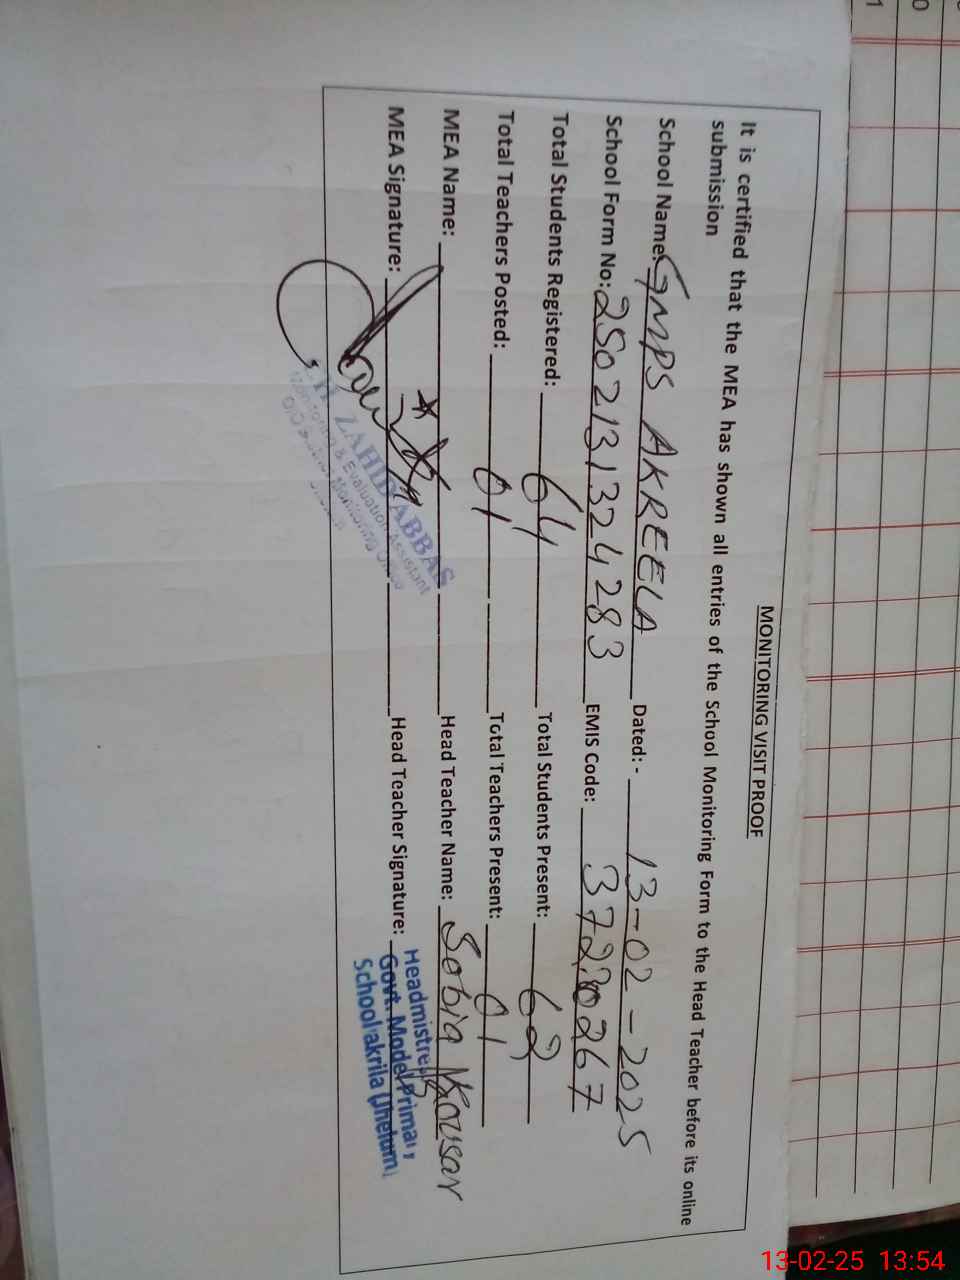 MONITORING VISIT PROOF
It is certified that the MEA has shown all entries of the School Monitoring Form to the Head Teacher before its online
submission
School Name: GMPS AKREELA Dated:- 13-02-2025
School Form No: 2502131324283 EMIS Code: 37230267
Total Students Registered: 64 Total Students Present: 62
Total Teachers Posted: 01 Total Teachers Present: 01
MEA Name: Head Teacher Name: Sobia Kousar
MEA Signature: Head Teacher Signature:
ZAHID ABBAS
Monitoring & Evaluation Assistant
Monitoring Office
Headmistress
Govt. Model Primary
School akrila (Jhelum)
0
1
13-02-25 13:54